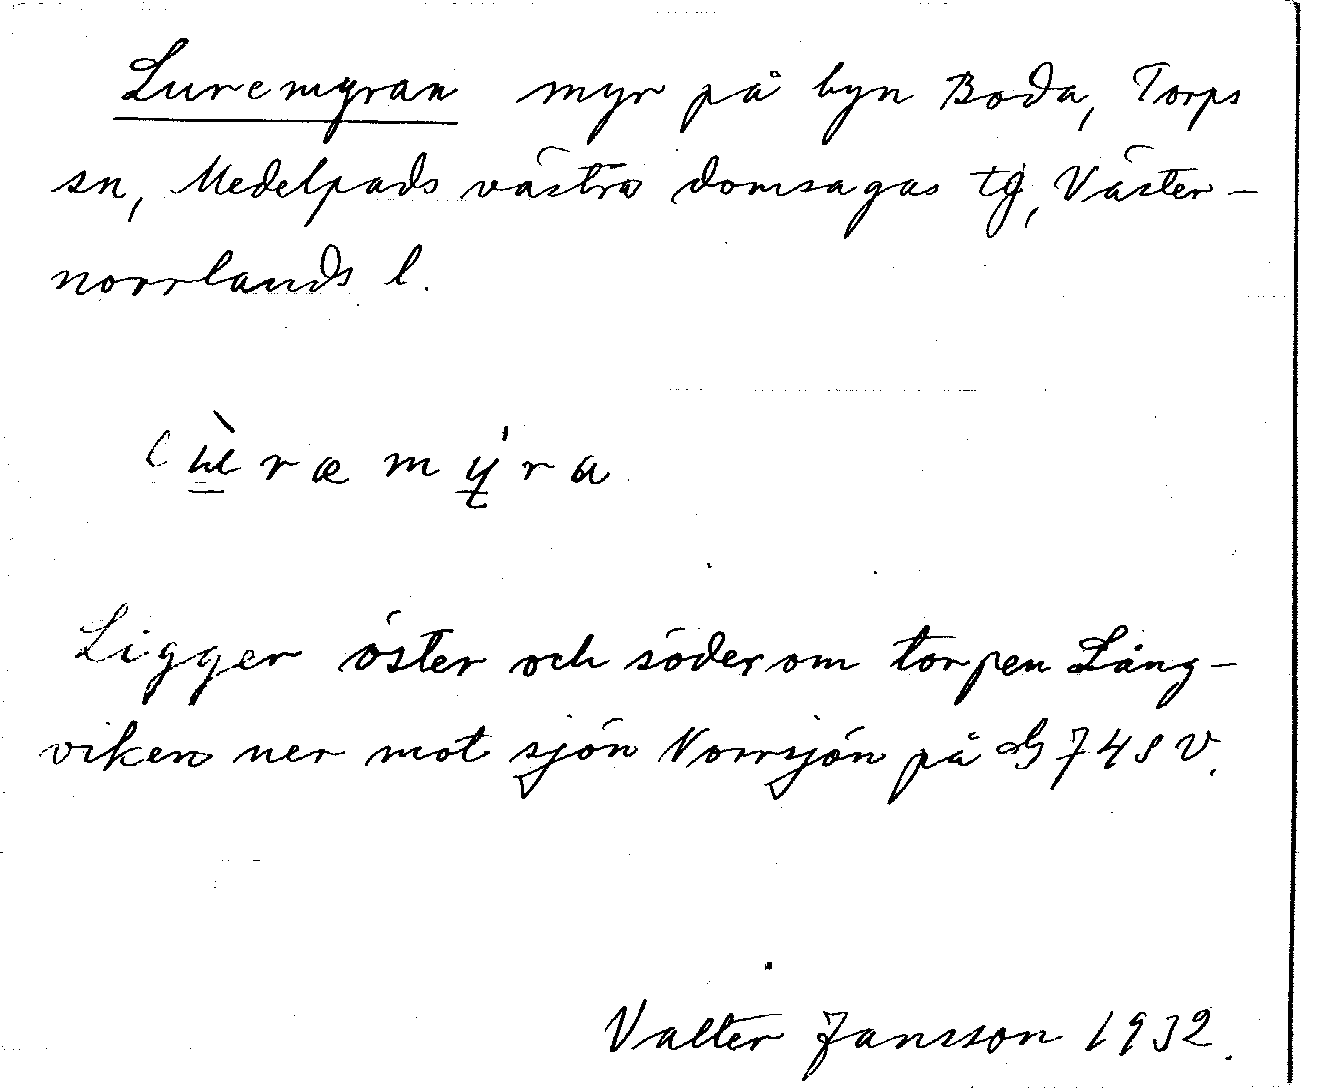 Luremyran myr på byn Boda, Torps
sn, Medelpads västra domsagas tg, Väster-
norrlands l.
lùræmýra
Ligger öster och söder om torpen Lång-
viken ner mot sjön Norrsjön på G 74 S V.
Valter Jansson 1932.